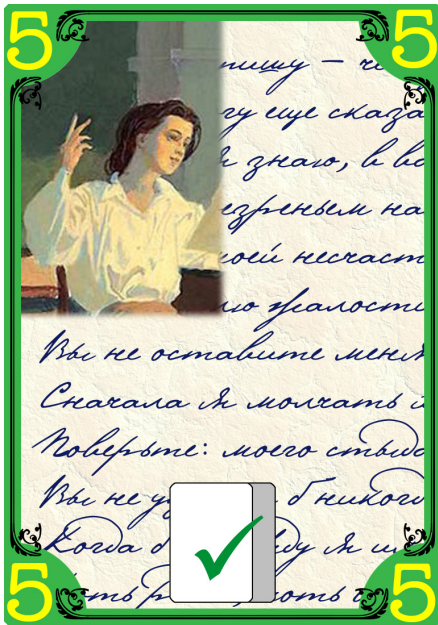 5 5
пишу —
гу еще сказа
я знаю, в во
езреньем на
оей несчаст
лю жалости
Вы не оставите меня
Сначала я молчать
Поверьте: моего стыд
Вы не у б никогд
Когда б ду я
ть оть
5 5